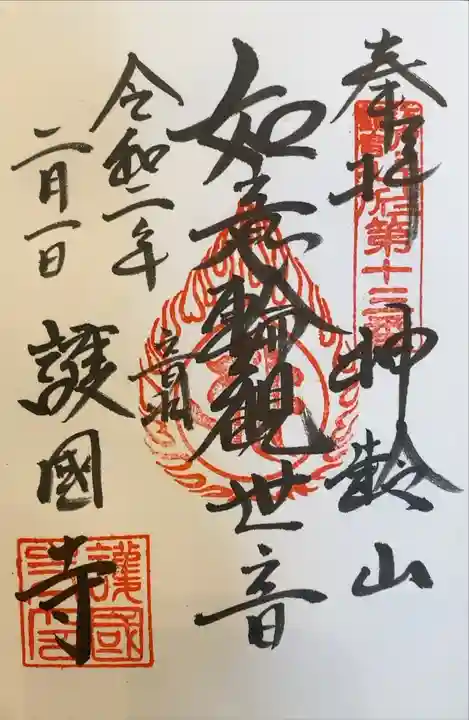 奉拝 神齢山
第十三番
如意輪觀世音
音羽
令和二年
二月一日
護國寺
護國